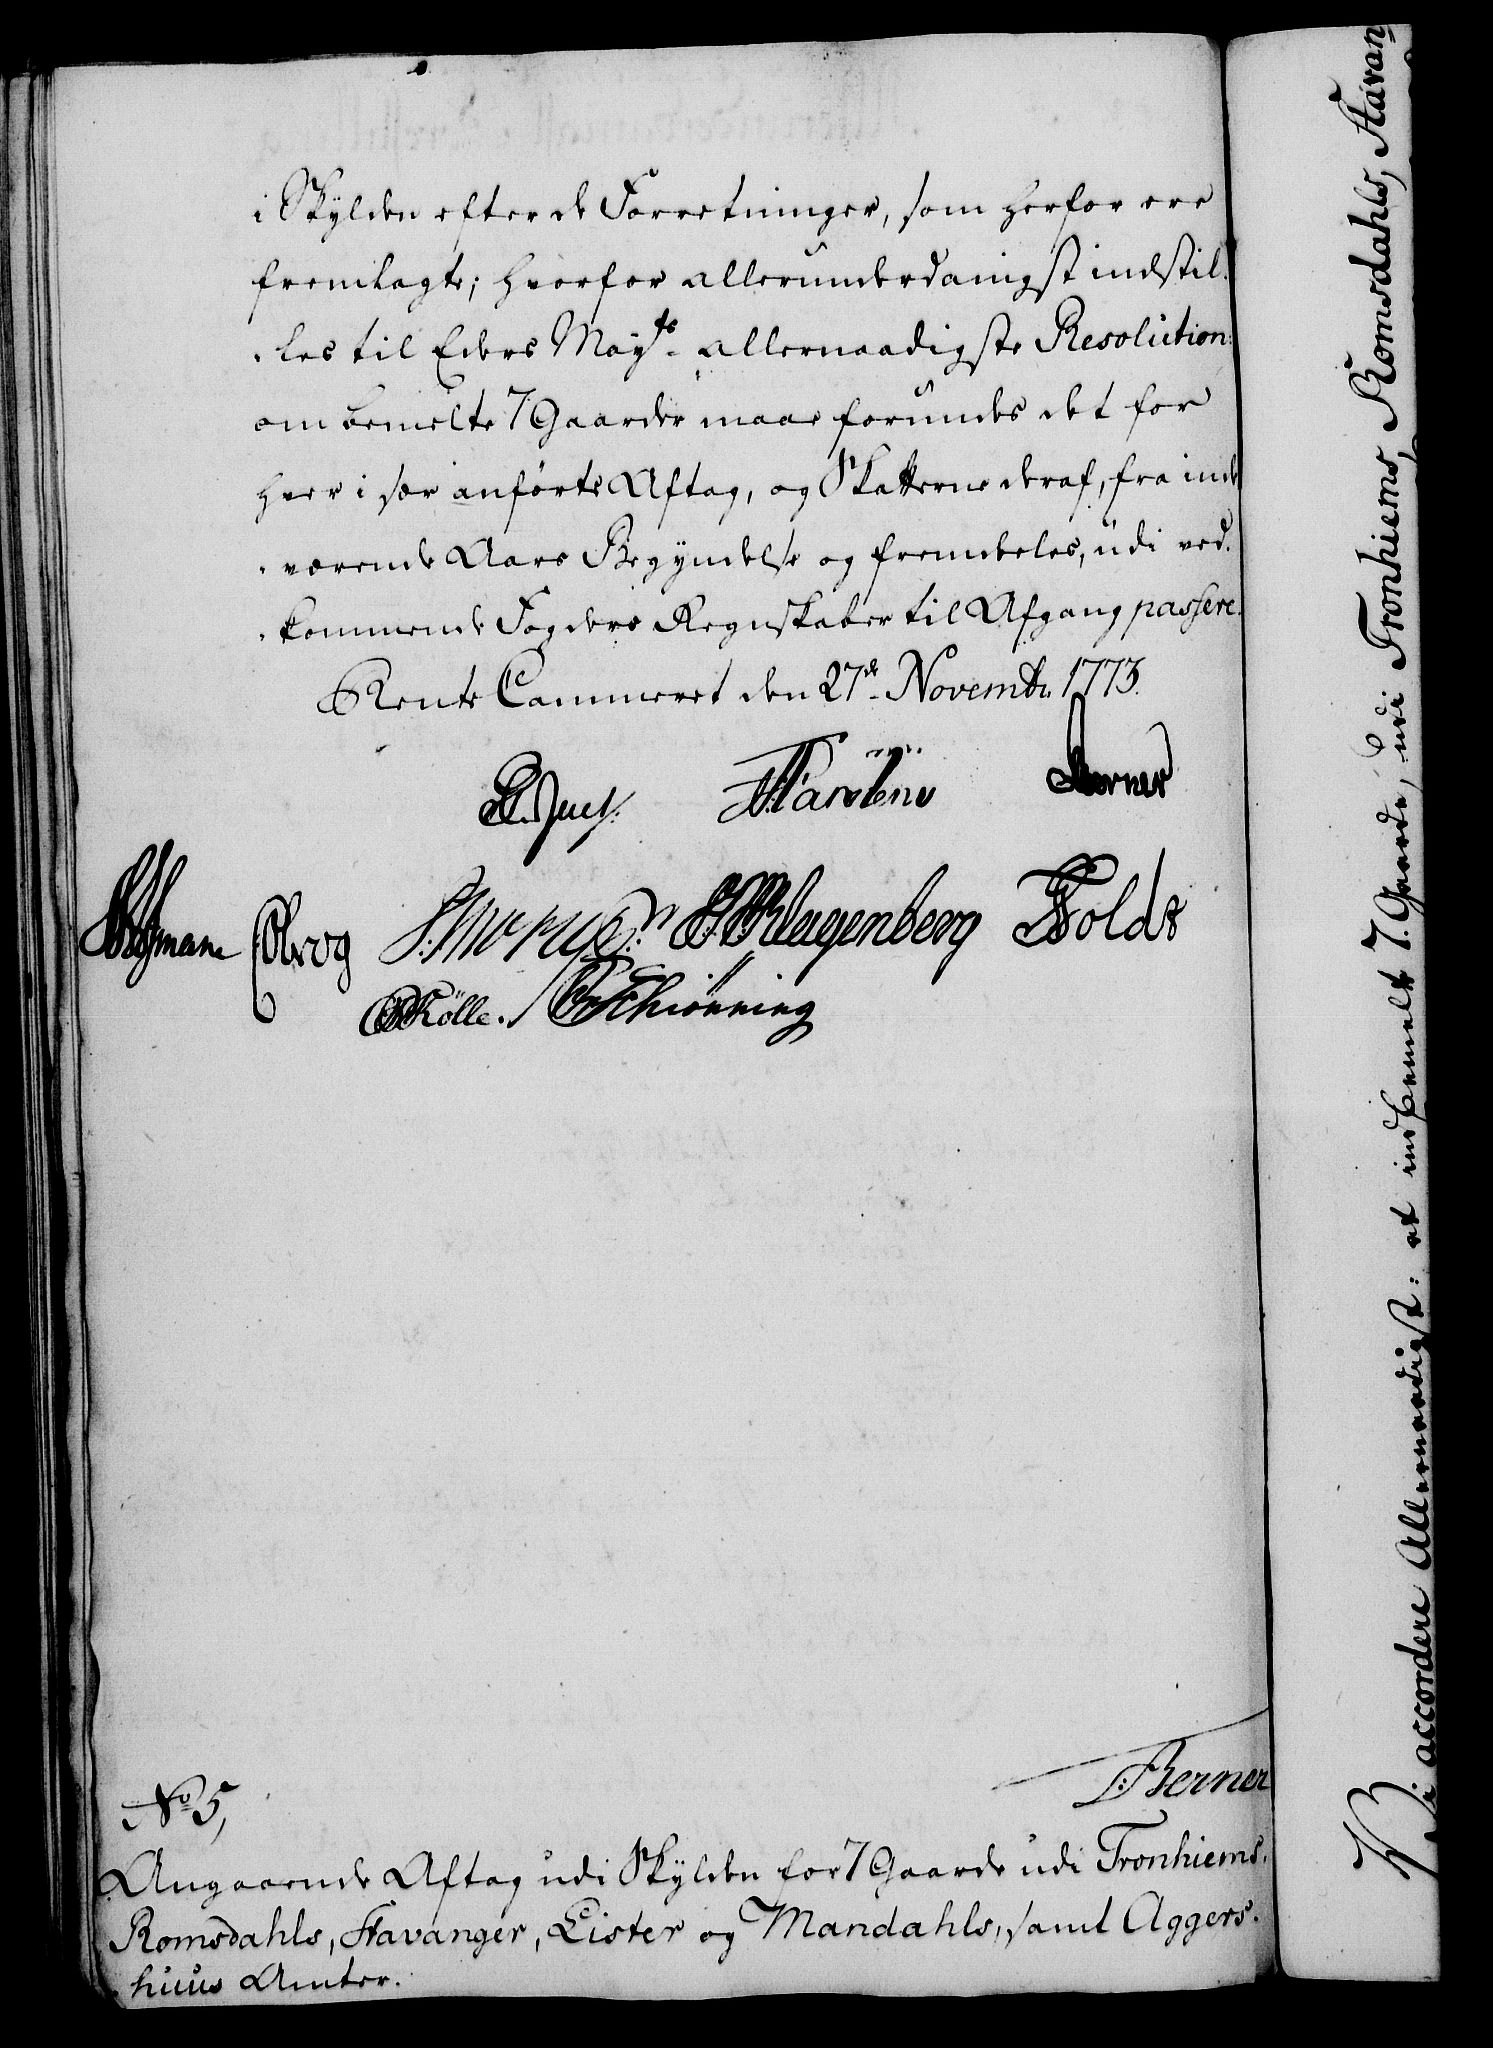 i Skylden efter de Forretninger, som herfor ere
fremlagte; hvorfor allerunderdanigst indstil-
-les til Eders Mayts. allernaadigste Resolution:
om bemelte 7 Gaarder maae forundes det for
hver i sær anførte Aftag, og Skatterne deraf, fra inde
-værende Aars Begyndelse og fremdeles, udi ved-
-kommende Fogders Regnskaber til Afgang passere.
Rente Cammeret den 27de Novembr. 1773.
Juel. Karstens Berner
Klagenberg Tfolds
Kölle. Schiönning
L: Berner
No 5,
Angaaende Aftag udi Skylden for 7 Gaarde udi Tronhiems,
Romsdahls, Stavanger, Lister og Mandahls, samt Aggers-
huus Amter.
Vi accordere Allernaadigst: at indbemelte 7. Gaarde, udi Tronhiems, Romsdahls, Stavan-